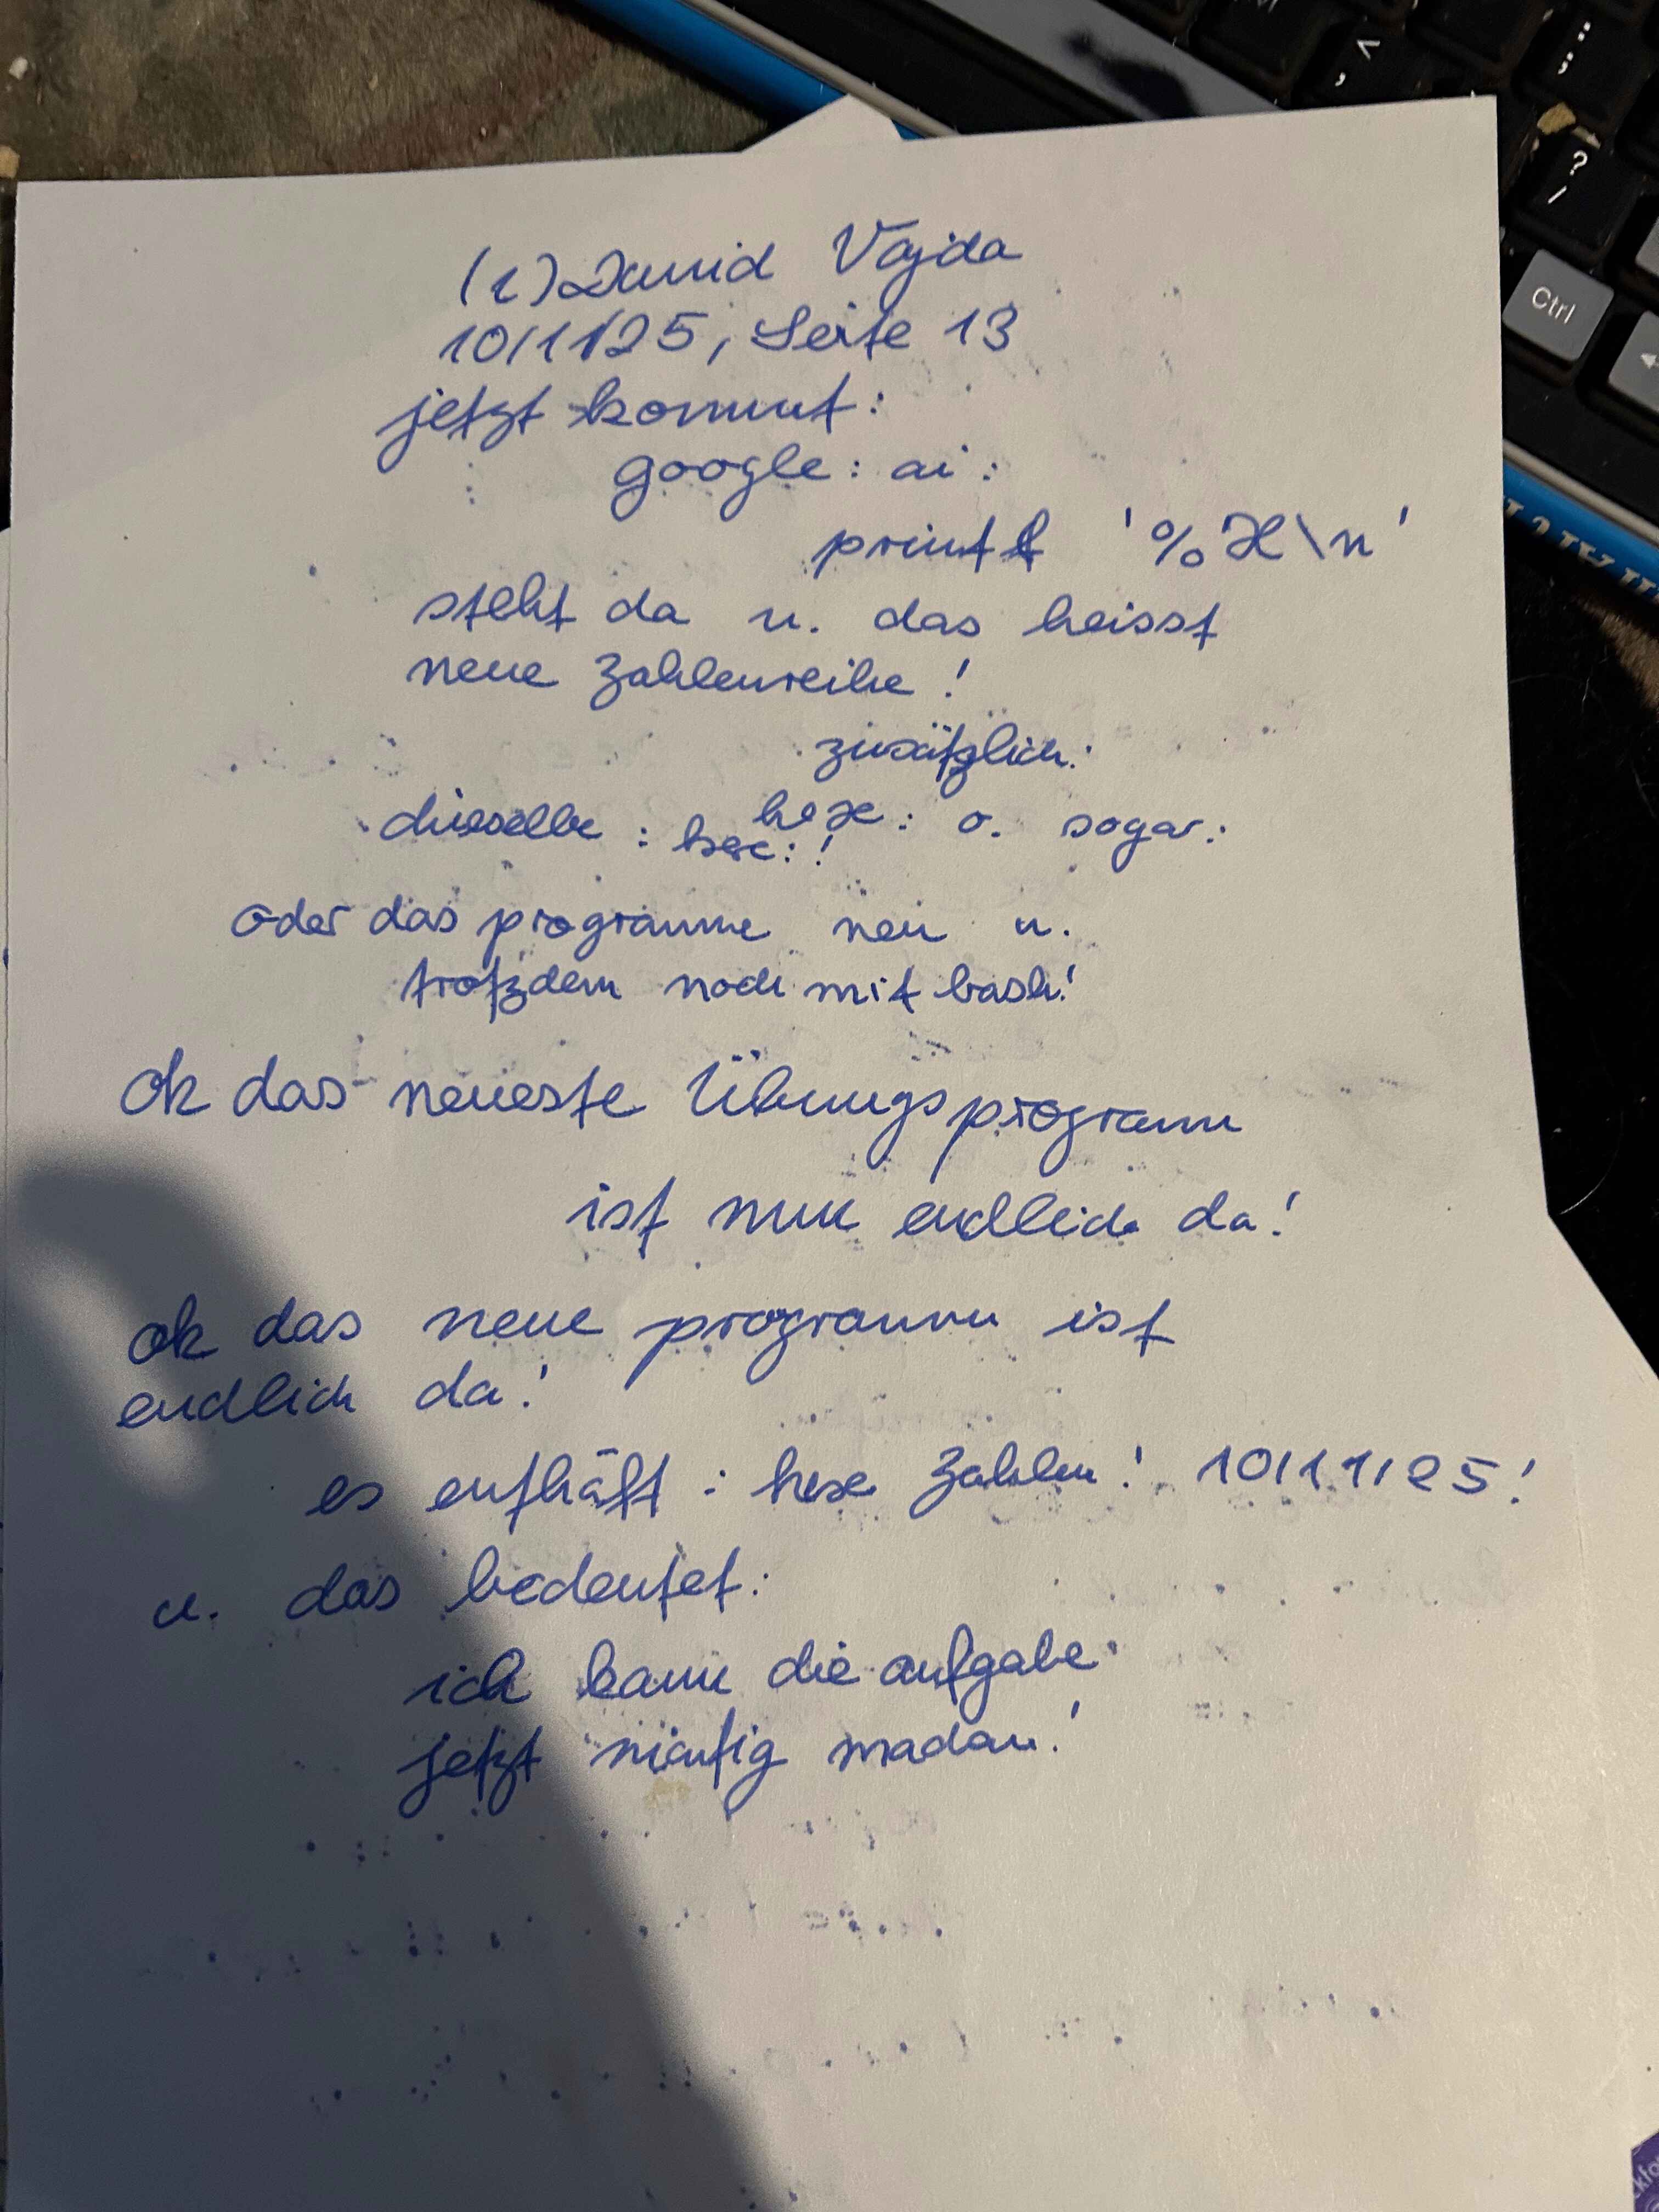 (c) David Vajda
10/11/25, Seite 13
jetzt kommt:
google: ai:
printf '%X\n'
steht da u. das heisst
neue Zahlenreihe!
zusätzlich:
dieselbe : hex: o. sogar:
hex: !
oder das programm neu u.
trotzdem noch mit bash!
ok das neueste Übungsprogramm
ist nun endlich da!
ok das neue programm ist
endlich da!
es enthält : hex Zahlen! 10/11/25!
u. das bedeutet:
ich kann die aufgabe
jetzt richtig machen!
Ctrl
? /